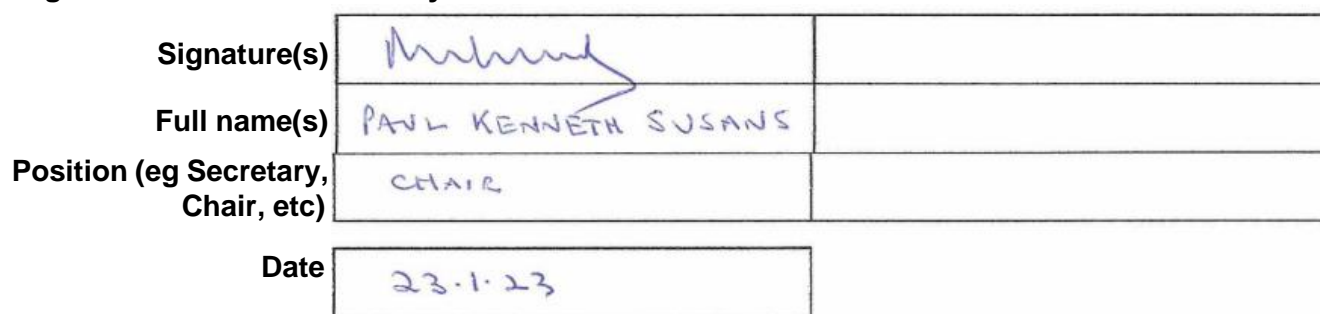 Signature(s)
Full name(s) PAUL KENNETH SUSANS
Position (eg Secretary,
Chair, etc) CHAIR
Date 23.1.23